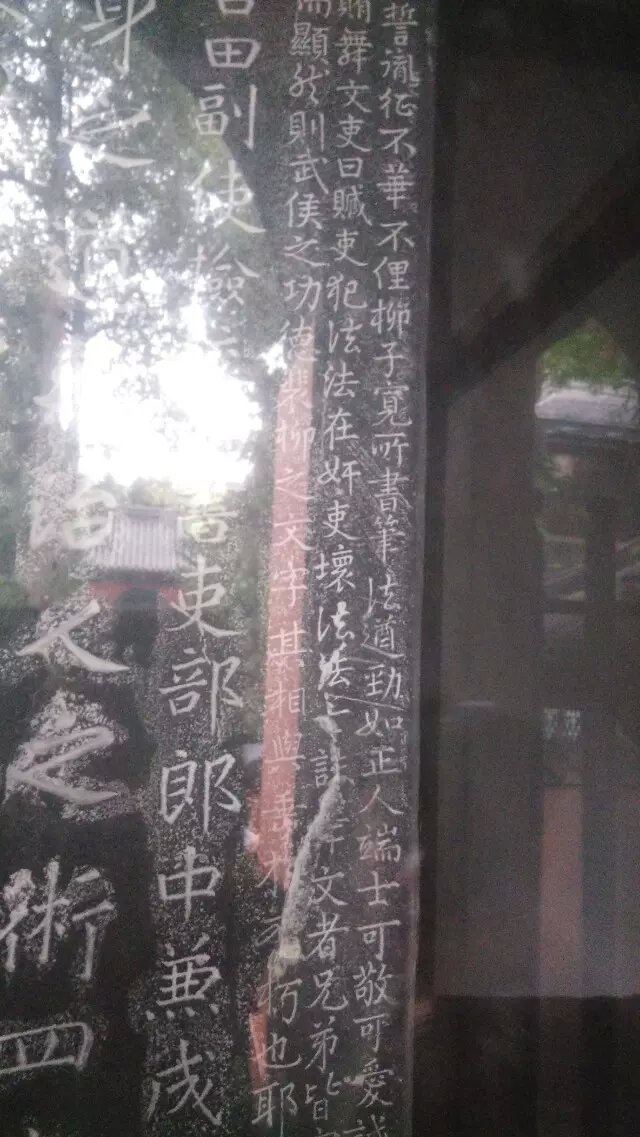 誓流征不華不俚柳子寛所書筆法遒勁如正人端士可敬可愛誠
賄舞文吏曰贓吏犯法法在奸吏壞法法亡 文者兄弟皆
而顯然則武侯之功德裴柳之文字其相與垂於不朽也耶
田副使檢 書吏部郎中兼成
身之 治人之術四